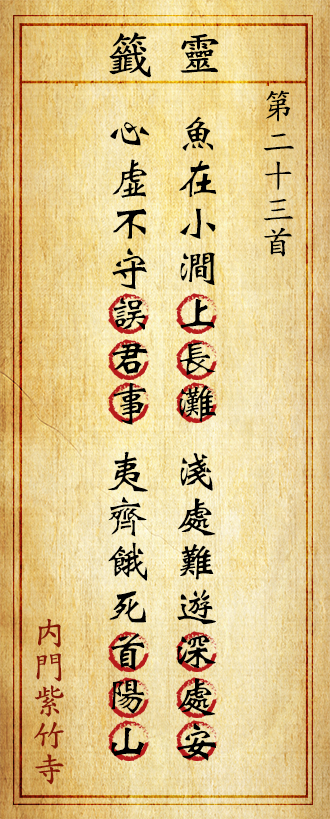 靈籤
第二十三首
魚在小澗上長灘 淺處難遊深處安
心虛不守誤君事 夷齊餓死首陽山
内門紫竹寺